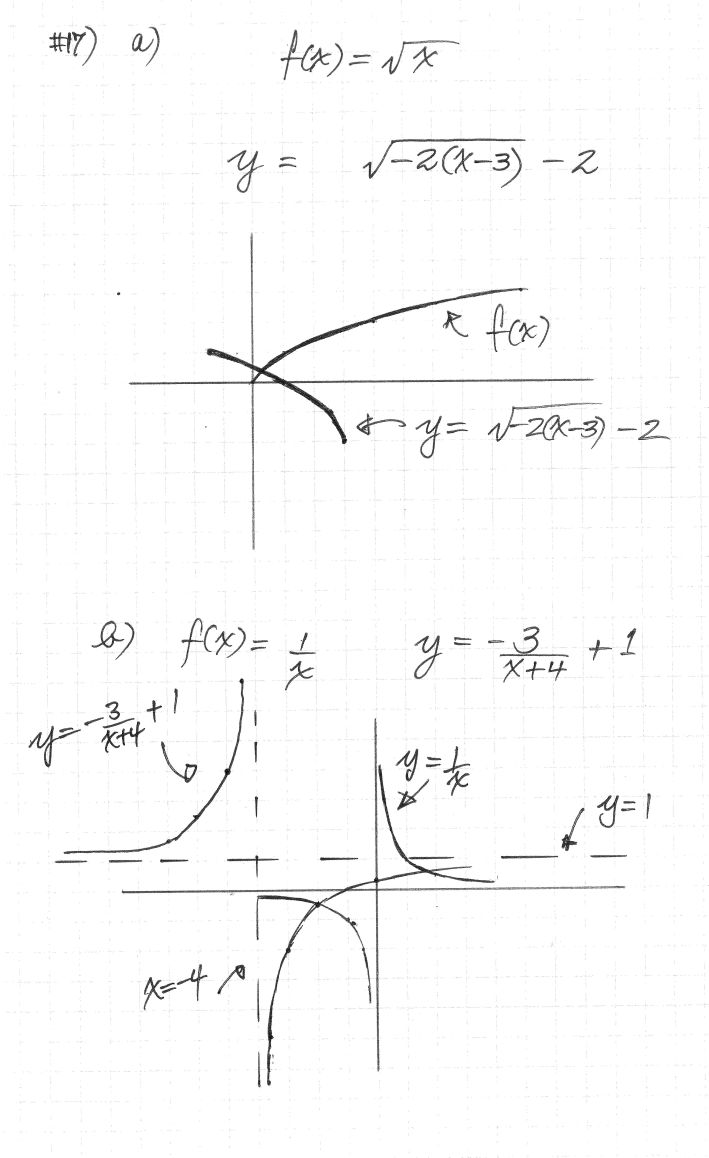 #17) a) f(x) = √x
y = √-2(x-3) - 2
f(x)
y = √-2(x-3) - 2
b) f(x) = 1/x y = -3/x+4 + 1
y = -3/x+4 + 1
y = 1/x
y = 1
x = -4